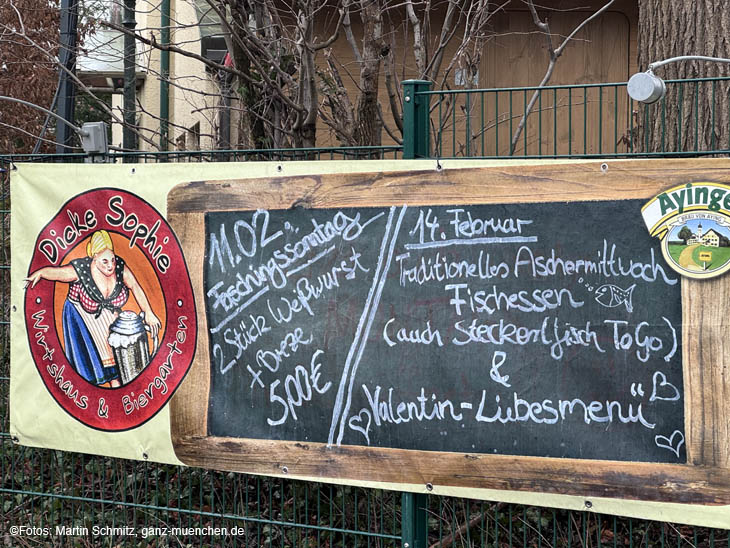 Dicke Sophie
Wirtshaus & Biergarten
11.02
Faschingssonntag
2 Stück Weßwurst
+ Breze
5,00€
14. Februar
Traditionelles Aschermittwoch
Fischessen
(auch Steckerlfisch To Go)
&
"Valentin-Liebesmenü"
Ayinge
BRÄU VON AYING
©Fotos: Martin Schmitz, ganz-muenchen.de